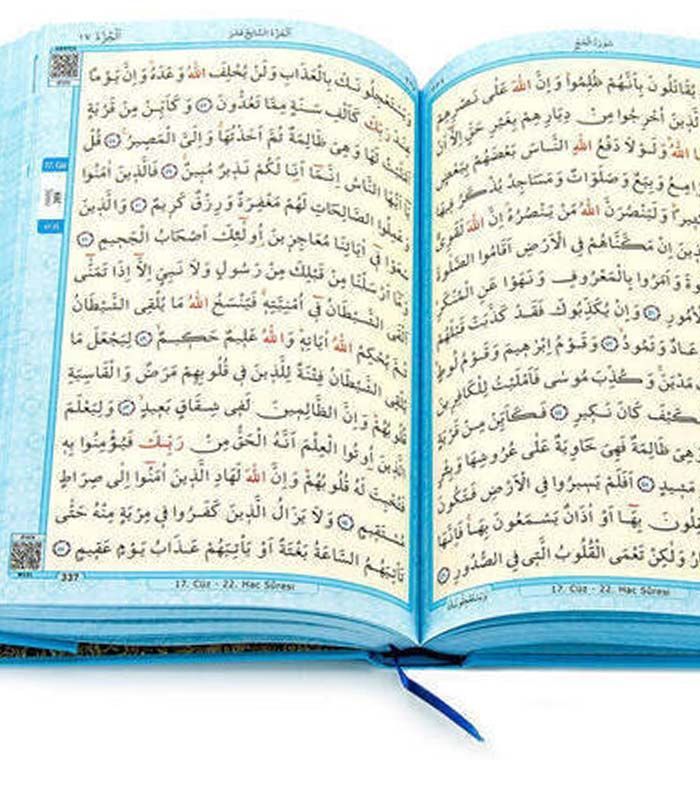 سُورَةُ الْحَجِّ
يُقَاتَلُونَ بِاَنَّهُمْ ظُلِمُواۜ وَاِنَّ اللّٰهَ عَلٰى نَصْرِهِمْ
اَلَّذٖينَ اُخْرِجُوا مِنْ دِيَارِهِمْ بِغَيْرِ حَقٍّ اِلَّٓا اَنْ
اللّٰهُۜ وَلَوْلَا دَفْعُ اللّٰهِ النَّاسَ بَعْضَهُمْ بِبَعْضٍ
وَبِيَعٌ وَصَلَوَاتٌ وَمَسَاجِدُ يُذْكَرُ فٖيهَا
وَلَيَنْصُرَنَّ اللّٰهُ مَنْ يَنْصُرُهُۜ اِنَّ اللّٰهَ لَقَوِيٌّ
اِنْ مَكَّنَّاهُمْ فِي الْاَرْضِ اَقَامُوا الصَّلٰوةَ
وَاَمَرُوا بِالْمَعْرُوفِ وَنَهَوْا عَنِ الْمُنْكَرِ
وَاِنْ يُكَذِّبُوكَ فَقَدْ كَذَّبَتْ قَبْلَهُمْ
وَثَمُودُ وَقَوْمُ اِبْرٰهٖيمَ وَقَوْمُ لُوطٍ
مَدْيَنَۚ وَكُذِّبَ مُوسٰى فَاَمْلَيْتُ لِلْكَافِرٖينَ
فَكَيْفَ كَانَ نَكٖيرِ فَكَاَيِّنْ مِنْ قَرْيَةٍ
وَهِيَ ظَالِمَةٌ فَهِيَ خَاوِيَةٌ عَلٰى عُرُوشِهَا
مَشٖيدٍ اَفَلَمْ يَسٖيرُوا فِي الْاَرْضِ فَتَكُونَ
بِهَٓا اَوْ اٰذَانٌ يَسْمَعُونَ بِهَاۚ فَاِنَّهَا
وَلٰكِنْ تَعْمَى الْقُلُوبُ الَّتٖي فِي الصُّدُورِ
وَيَسْتَعْجِلُونَكَ
17. Cüz - 22. Hac Sûresi
اَلْجُزْءُ السَّابِعُ عَشَرَ
اَلْجُزْءُ ١٧
وَيَسْتَعْجِلُونَكَ بِالْعَذَابِ وَلَنْ يُخْلِفَ اللّٰهُ وَعْدَهُۜ وَاِنَّ يَوْمًا
عِنْدَ رَبِّكَ كَاَلْفِ سَنَةٍ مِمَّا تَعُدُّونَ وَكَاَيِّنْ مِنْ قَرْيَةٍ
اَمْلَيْتُ لَهَا وَهِيَ ظَالِمَةٌ ثُمَّ اَخَذْتُهَاۚ وَاِلَيَّ الْمَصٖيرُ قُلْ
يَٓا اَيُّهَا النَّاسُ اِنَّمَٓا اَنَا لَكُمْ نَذٖيرٌ مُبٖينٌۚ فَالَّذٖينَ اٰمَنُوا
وَعَمِلُوا الصَّالِحَاتِ لَهُمْ مَغْفِرَةٌ وَرِزْقٌ كَرٖيمٌ وَالَّذٖينَ
سَعَوْا فٖٓي اٰيَاتِنَا مُعَاجِزٖينَ اُو۬لٰٓئِكَ اَصْحَابُ الْجَحٖيمِ
وَمَٓا اَرْسَلْنَا مِنْ قَبْلِكَ مِنْ رَسُولٍ وَلَا نَبِيٍّ اِلَّٓا اِذَا تَمَنّٰٓى
اَلْقَى الشَّيْطَانُ فٖٓي اُمْنِيَّتِهٖۚ فَيَنْسَخُ اللّٰهُ مَا يُلْقِي الشَّيْطَانُ
ثُمَّ يُحْكِمُ اللّٰهُ اٰيَاتِهٖۜ وَاللّٰهُ عَلٖيمٌ حَكٖيمٌۙ لِيَجْعَلَ مَا
يُلْقِي الشَّيْطَانُ فِتْنَةً لِلَّذٖينَ فٖي قُلُوبِهِمْ مَرَضٌ وَالْقَاسِيَةِ
قُلُوبُهُمْۜ وَاِنَّ الظَّالِمٖينَ لَفٖي شِقَاقٍ بَعٖيدٍۙ وَلِيَعْلَمَ
الَّذٖينَ اُو۫تُوا الْعِلْمَ اَنَّهُ الْحَقُّ مِنْ رَبِّكَ فَيُؤْمِنُوا بِهٖ
فَتُخْبِتَ لَهُ قُلُوبُهُمْۜ وَاِنَّ اللّٰهَ لَهَادِ الَّذٖينَ اٰمَنُٓوا اِلٰى صِرَاطٍ
مُسْتَقٖيمٍ وَلَا يَزَالُ الَّذٖينَ كَفَرُوا فٖي مِرْيَةٍ مِنْهُ حَتّٰى
تَأْتِيَهُمُ السَّاعَةُ بَغْتَةً اَوْ يَأْتِيَهُمْ عَذَابُ يَوْمٍ عَقٖيمٍ
17. Cüz - 22. Hac Sûresi
337